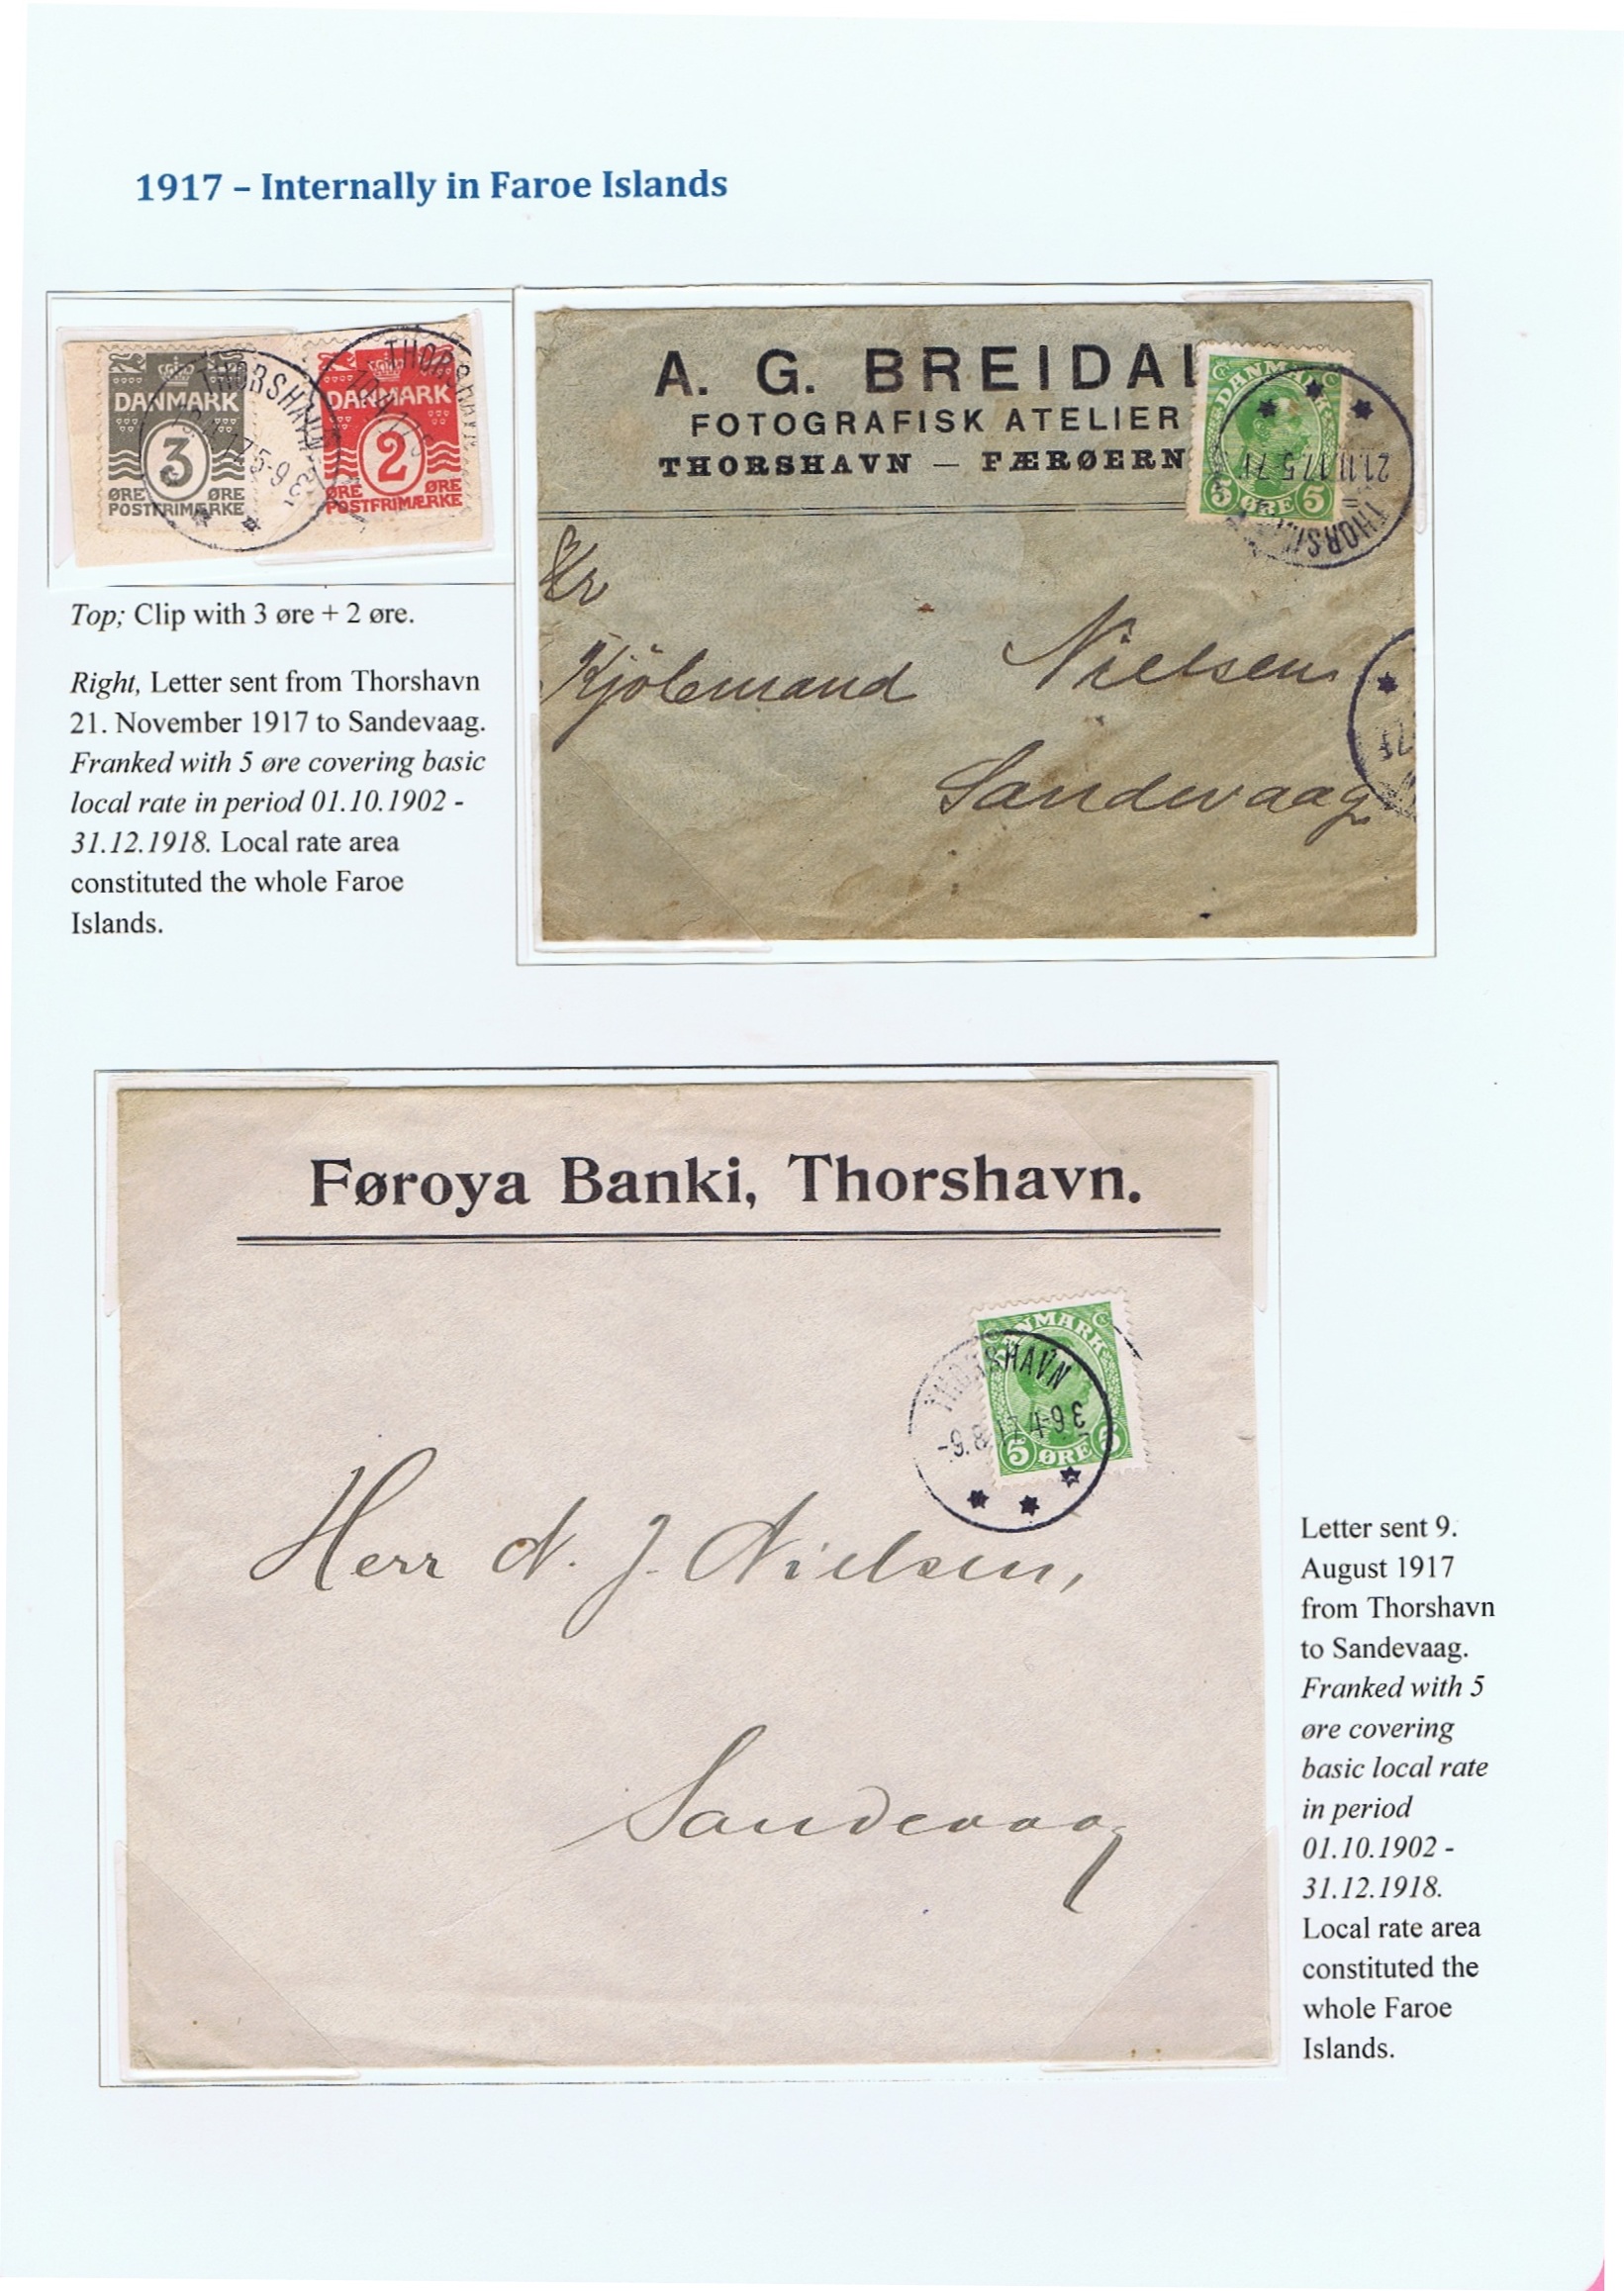 1917 – Internally in Faroe Islands
DANMARK
3
ØRE ØRE
POSTFRIMÆRKE
THORSHAVN
DANMARK
2
ØRE ØRE
POSTFRIMÆRKE
THORSHAVN
Top; Clip with 3 øre + 2 øre.
Right, Letter sent from Thorshavn
21. November 1917 to Sandevaag.
Franked with 5 øre covering basic
local rate in period 01.10.1902 -
31.12.1918. Local rate area
constituted the whole Faroe
Islands.
A. G. BREIDAL
FOTOGRAFISK ATELIER
THORSHAVN — FÆRØERN
DANMARK
5 ØRE 5
21.11.17.5-7
Hr
Kjöbmand Nielsen
Sandevaag
Føroya Banki, Thorshavn.
DANMARK
5 ØRE 5
THORSHAVN
-9.8.17 4-9 E
Herr N. J. Nielsen,
Sandevaag
Letter sent 9.
August 1917
from Thorshavn
to Sandevaag.
Franked with 5
øre covering
basic local rate
in period
01.10.1902 -
31.12.1918.
Local rate area
constituted the
whole Faroe
Islands.